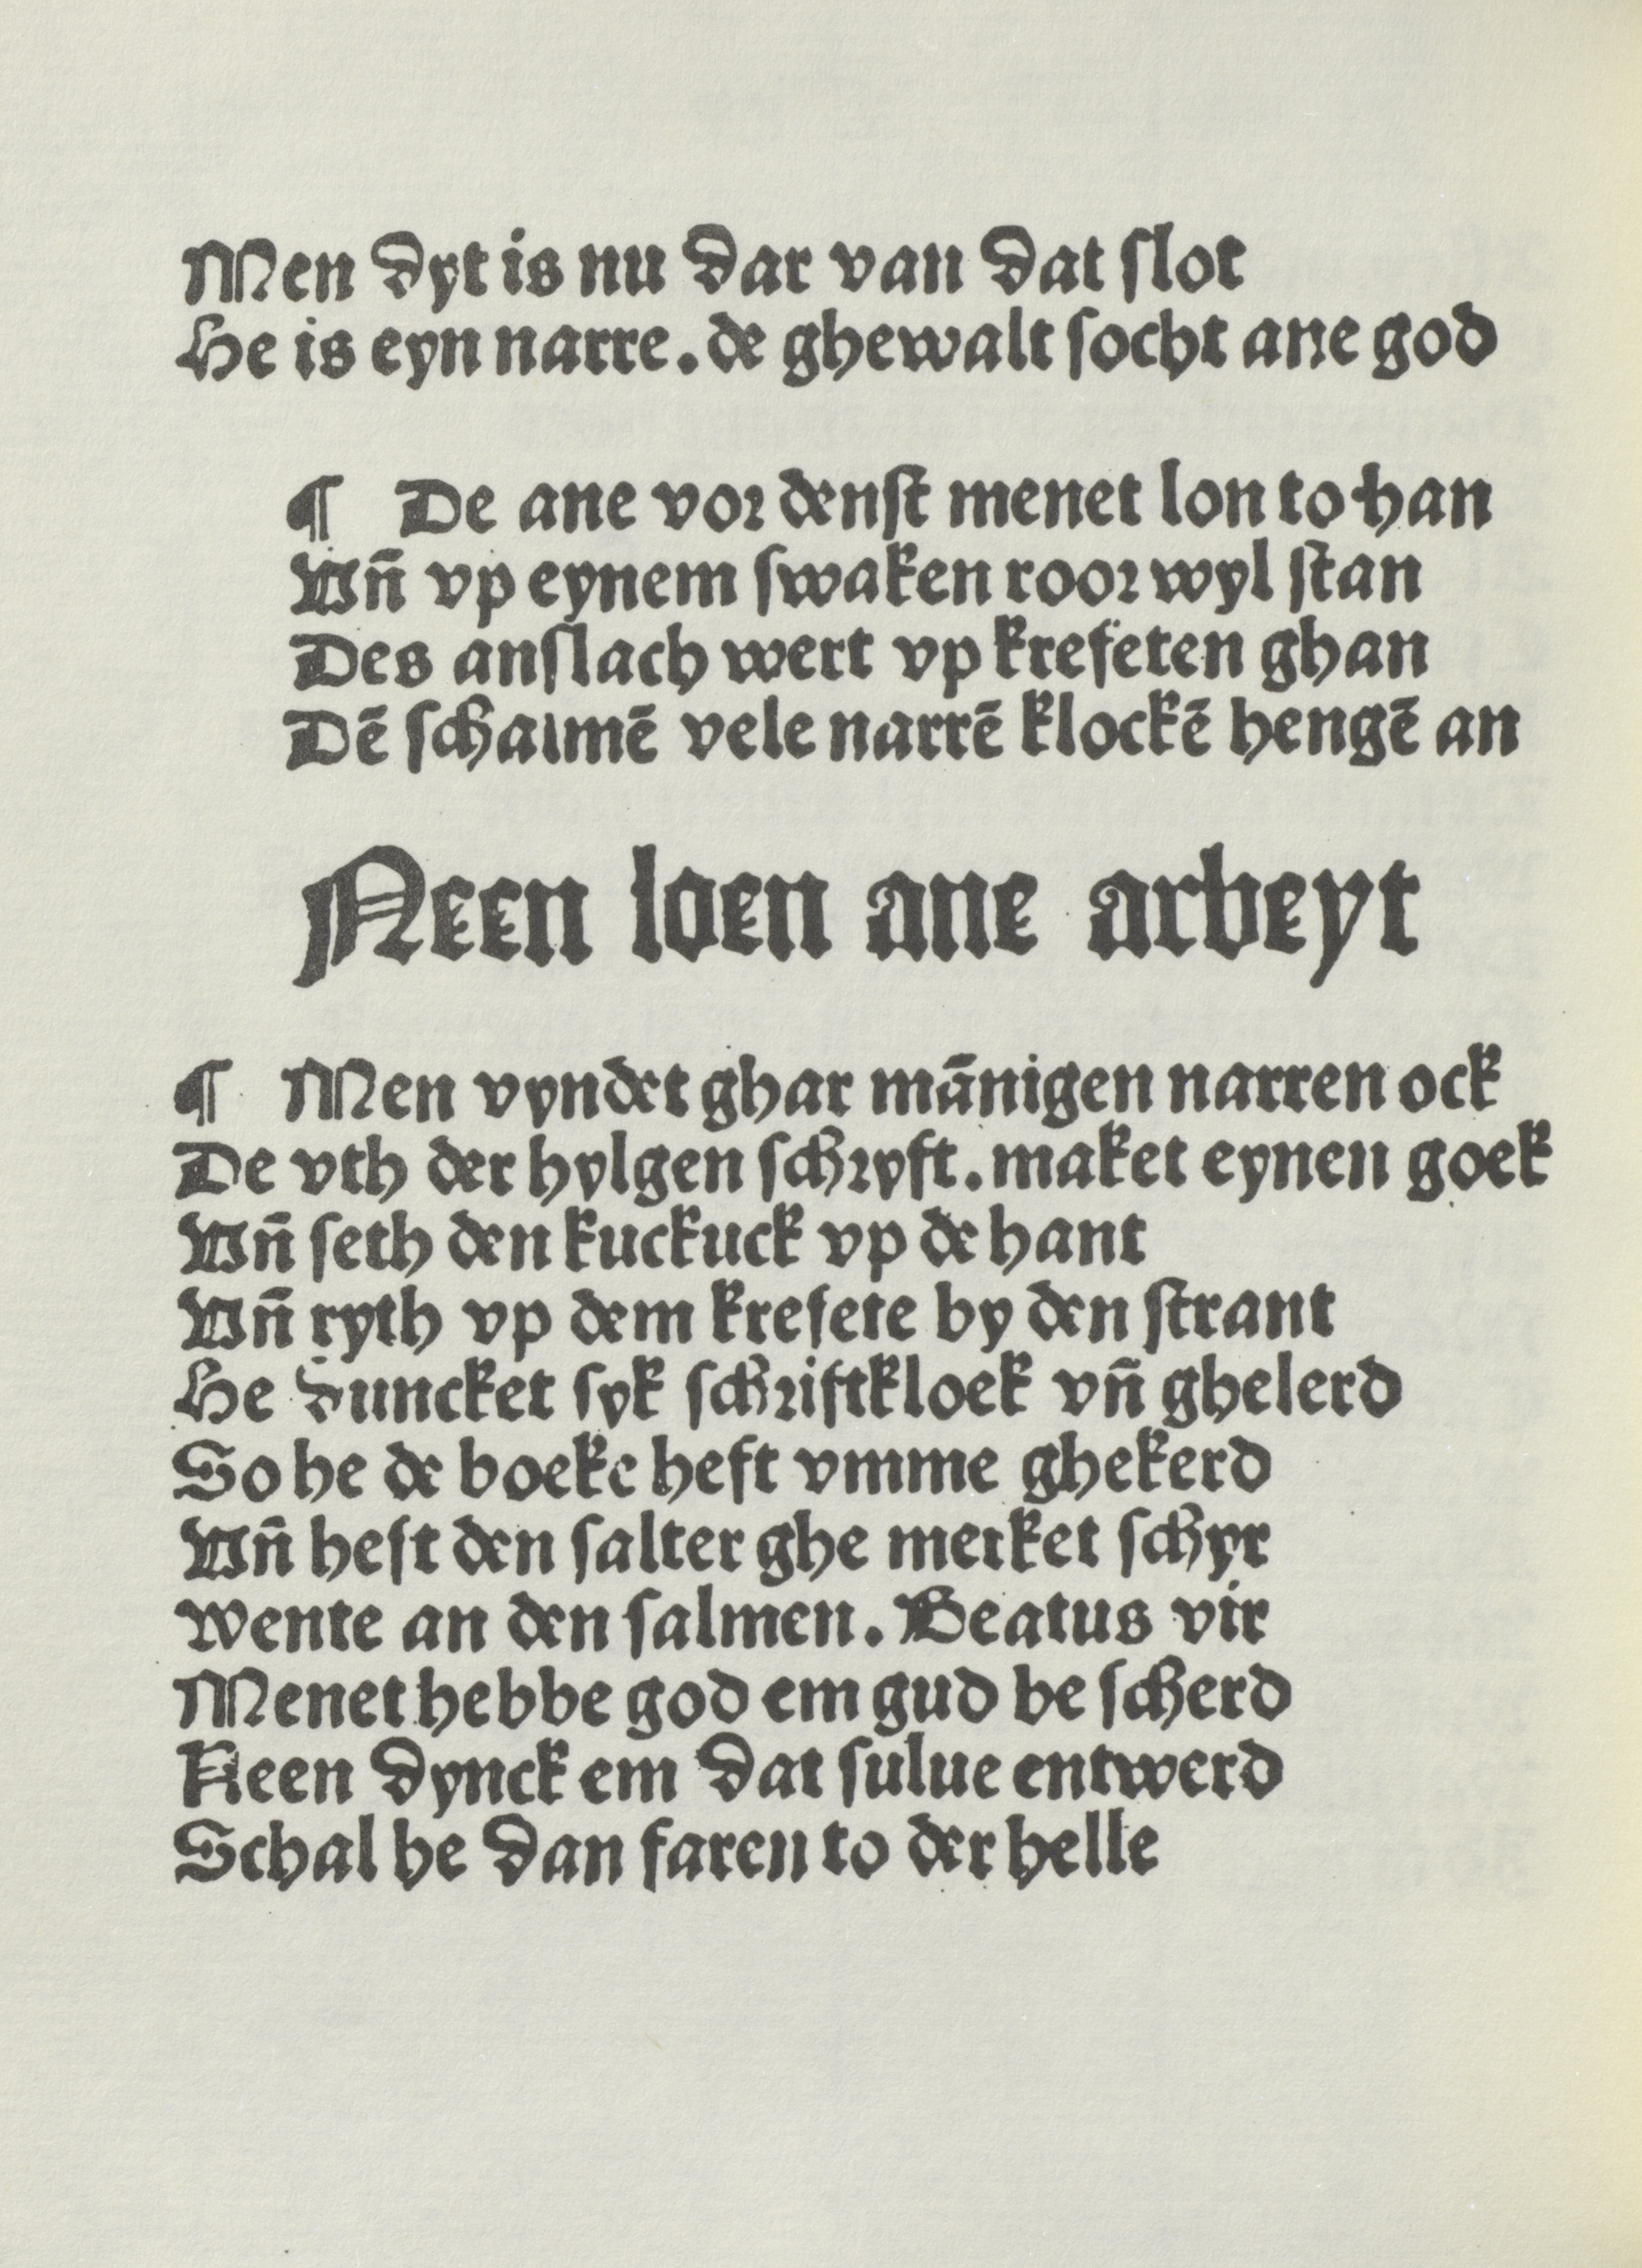 Men dyt is nu dar van dat ſlot
He is eyn narre. de ghewalt ſocht ane god
¶ De ane vor denſt menet lon to han
Vñ vp eynem ſwaken roor wyl ſtan
Des anſlach wert vp krefeten ghan
Dē ſchalmē vele narrē klockē hengē an
Neen loen ane arbeyt
¶ Men vyndet ghar mānigen narren ock
De vth der hylgen ſchryft. maket eynen goek
Vñ ſeth den kuckuck vp de hant
Vñ ryth vp dem krefete by den ſtrant
He duncket ſyk ſchriftkloek vñ ghelerd
So he de boeke heft vmme ghekerd
Vñ heft den ſalter ghe merket ſchyr
wente an den ſalmen. Beatus vir
Menet hebbe god em gud be ſcherd
Neen dynck em dat ſulue entwerd
Schal he dan faren to der helle